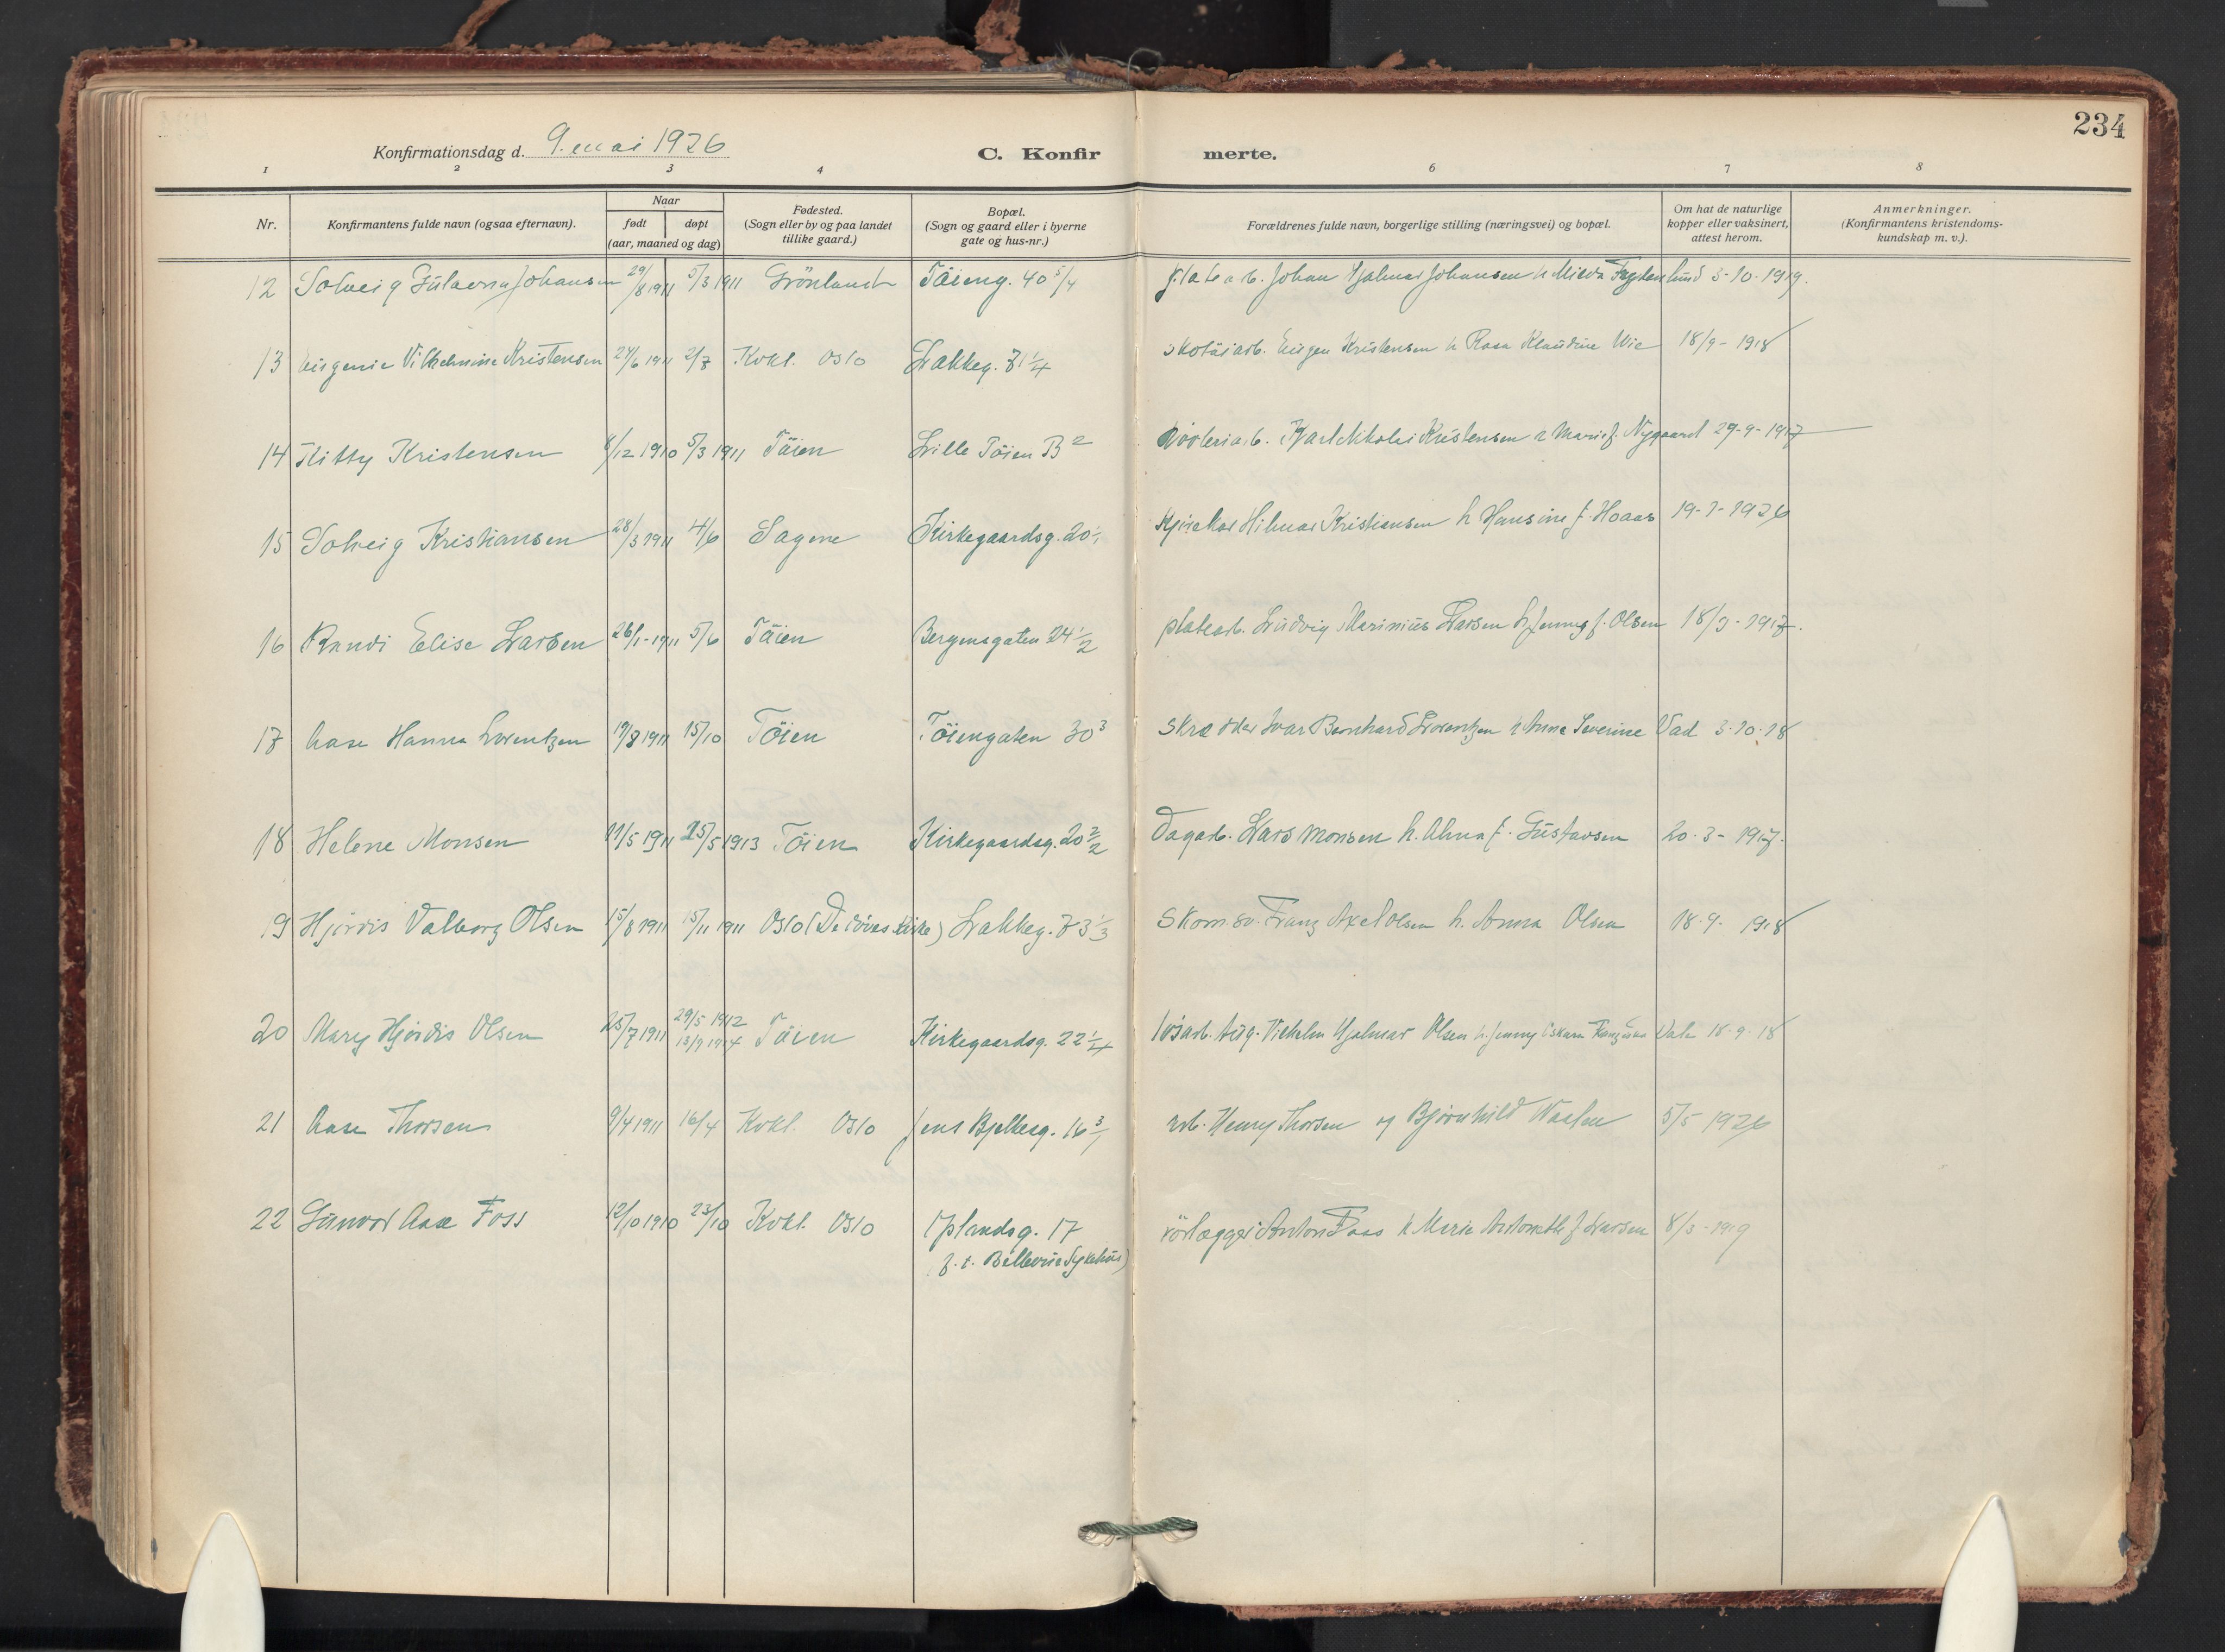 234
Konfirmationsdag d. 9. mai 1926
C. Konfirmerte.
1 2 3 4 6 7 8
Nr. Konfirmantens fulde navn (ogsaa efternavn). Naar født døpt (aar, maaned og dag) Fødested. (Sogn eller by og paa landet tillike gaard.) Bopæl. (Sogn og gaard eller i byerne gate og hus-nr.) Forældrenes fulde navn, borgerlige stilling (næringsvei) og bopæl. Om hat de naturlige kopper eller vaksinert, attest herom. Anmerkninger. (Konfirmantens kristendoms-kundskap m. v.).
12 Solveig Johansen 29/8 1911 5/3 1911 Grönland Töieng. 40 5/4 platearb. Johan Hjalmar Johansen h Milda 5-10-1919.
13 Eugenie Vilhelmine Kristensen 24/6 1911 2/7 Kvkl. Oslo Lakkeg. 71 1/4 skotöiarb. Eugen Kristensen h Rosa Klaudine Wie 18/9-1918
14 Kitty Kristensen 8/12 1910 5/3 1911 Töien Lille Töien B 2 Karl Nikolai Kristensen h Marie f. Nygaard 29-9-1917
15 Solveig Kristiansen 28/3 1911 4/6 Sagene Kirkegaardsg. 20 Hilmar Kristiansen h Hansine f. Hoaas 19-1-1926
16 Randi Elise Larsen 26/1-1911 5/6 Töien Bergensgaten 24 1/2 platearb. Ludvig Marinius Larsen h Jenny f. Olsen 18/9-1917.
17 Aase Hanna Lorentzen 19/8 1911 15/10 Töien Töiengaten 30 3 Skrædder Ivar Bernhard Lorentzen h Anna Severine Vad 3-10-18
18 Helene Monsen 11/5 1911 25/5 1913 Töien Kirkegaardsg. 20 2/2 Dagarb. Lars Monsen h. Alma f. Gustavsen 20-3-1917.
19 Hjördis Valborg Olsen 15/8 1911 15/11 1911 Oslo (De döves kirke) Lakkeg. 73 1/3 Skom.sv. Franz Axel Olsen h. Anna Olsen 18-9-1918
20 Mary Hjördis Olsen 25/7 1911 29/5 1912 13/9 1914 Töien Kirkegaardsg. 22 1/4 lösarb. Aug. Vilhelm Hjalmar Olsen h. Jenny Oskara 18-9-18
21 Aase Thorsen 9/4 1911 16/4 Kvkl. Oslo Jens Bjelkesg. 16 3/1 arb. Henry Thorsen og Bjørnhild Waalen 5/5 1926
22 Gunvor Aase Foss 12/10 1910 23/10 Kvkl. Oslo Uplandsg. 17
(z.t. Bellevue Sykehus) rörlægger Anton Foss h Marie f Larsen 8/3-1919